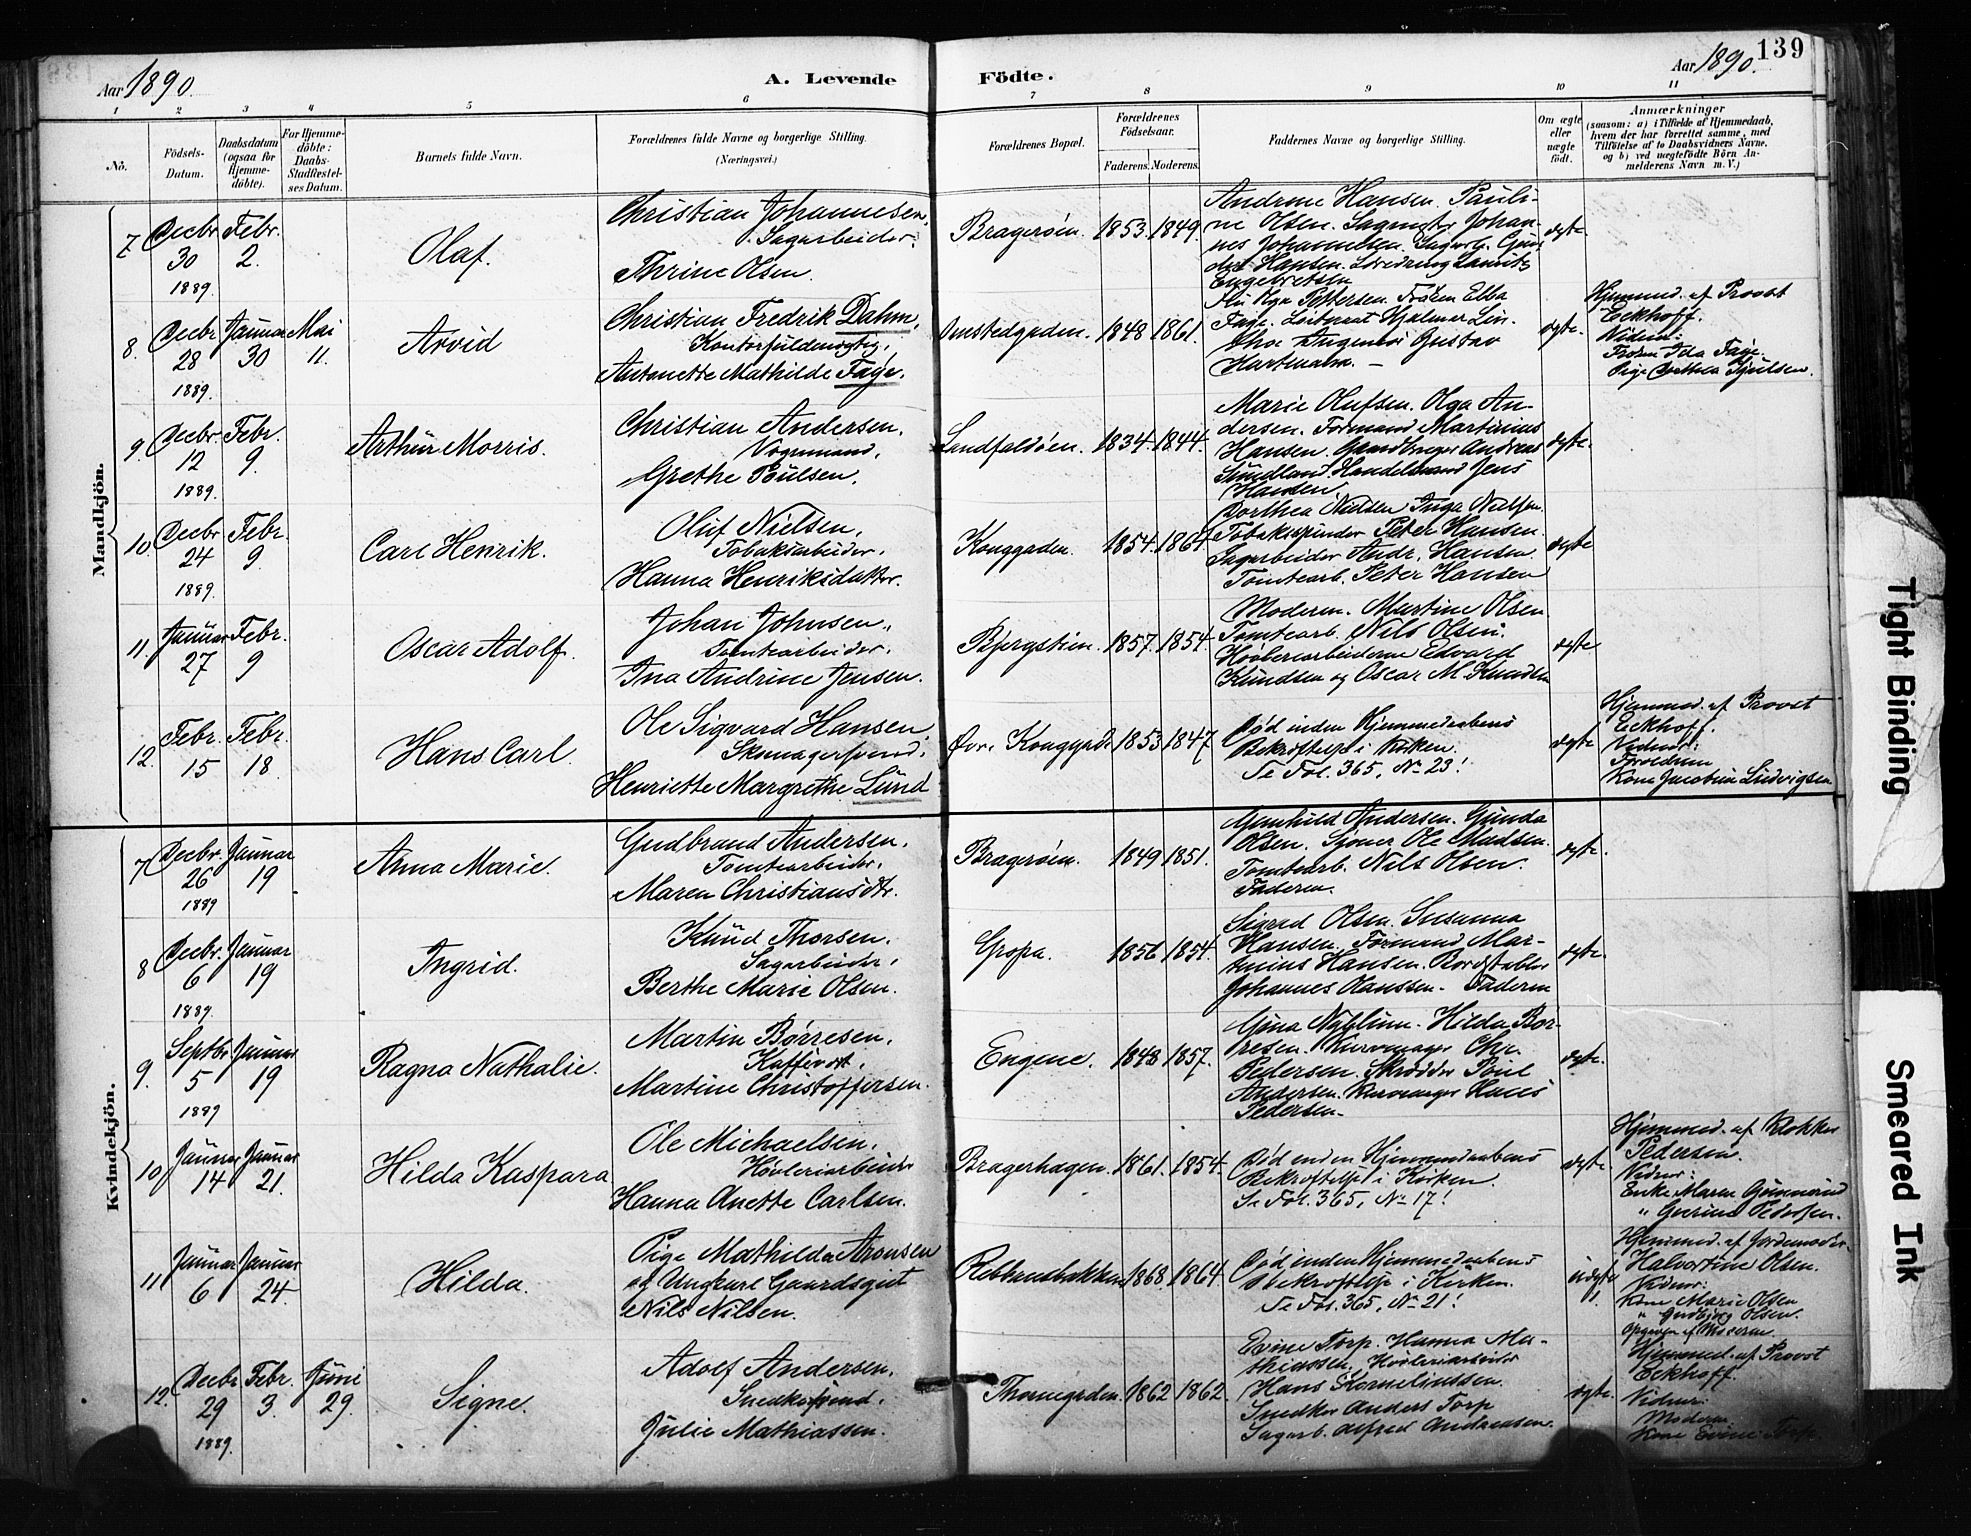 139
Aar 1890.
A. Levende Födte.
Aar 1890.
1 2 3 4 5 6 7 8 9 10 11
No.
Födsels-
Datum.
Daabsdatum
(ogsaa for
Hjemme-
döbte).
For Hjemme-
döbte:
Daabs-
Stadfæstel-
ses Datum.
Barnets fulde Navn.
Forældrenes fulde Navne og borgerlige Stilling.
(Næringsvei.)
Forældrenes Bopæl.
Forældrenes
Födselsaar.
Faderens. Moderens.
Faddernes Navne og borgerlige Stilling.
Om ægte
eller
uægte
födt.
Anmærkninger
(saasom: a) i Tilfælde af Hjemmedaab,
hvem der har forrettet samme, med
Tilföielse af to Daabsvidners Navne,
og b) ved uægtefödte Börn An-
melderens Navn m. V.)
Mandkjön.
7 Decbr 30 1889. Febr. 2.
Olaf.
Christian Johannesen,
Sagarbeider,
Thrine Olsen.
Bragerøen. 1853. 1849.
Andrine Hansen. Pauli-
ne Olsen. Sagmstr Johan-
nes Johannesen. Sagarb.
Hansen.
Engebretsen
ægte.
8. Decbr 28 1889. Januar 30 Mai 11.
Arvid
Christian Fredrik Dahm,
Kontorfuldmægtig,
Antonette Mathilde Faye.
1848 1861.
Olga Pettersen. Frøken Elba
Faye. Hjalmar Lin-
Gustav
Hartmann. —
ægte.
Hjemmed. af Provst
Eckhoff.
Vidner:
Frøken Ida Faye.
Pige Dorthea
9. Decbr. 12 1889. Febr. 9.
Arthur Morris.
Christian Andersen,
Vognmand,
Grethe Poulsen.
Landfaldøen. 1834. 1844.
Marie Olufsen. Olga An-
dersen. Formand Martinius
Hansen. Gaardbruger Andreas
Sundland. Handelsmand Jens
Hansen.
ægte
10. Decbr. 24 1889. Febr. 9.
Carl Henrik.
Oluf Nielsen,
Tobakiarbeider,
Hanna Henriksdatter.
Konggaden. 1854. 1864.
Dorthea Nielsen Inga Nielsen.
Tobakspinder Peter Hansen.
Sagarbeider Andr. Hansen.
Tomtearb. Peter Hansen
ægte
11. Januar 27 Febr. 9
Oscar Adolf.
Johan Johnsen,
Tomtearbeider,
Ina Andrine Jensen.
Bjergstien. 1857. 1854.
Moderen. Martine Olsen
Tomtearb. Nils Olsen.
Høvleriarbeiderne Edvard
Knudsen og Oscar M. Knudsen
ægte
12. Febr. 15 Febr. 18
Hans Carl.
Ole Sigvard Hansen,
Skomagersvend,
Henriette Margrethe Lund
Øvre Konggade 1853 1847
Død inden Hjemmedaabens
Bekræftelse i Kirken.
Se Fol. 365, No 23!
ægte
Hjemmed. af Provst
Eckhoff.
Vidner:
Forældrene
Kone Jacobine Ludvigsen
Kvindekjön.
7 Decbr. 26 1889 Januar 19
Anna Marie.
Gudbrand Andersen,
Tomtearbeider,
Maren Christiansdtr.
Bragerøen. 1849 1851.
Gunhild Andersen. Gunda
Olsen. Ole Madsen.
Tomtearb. Nils Olsen.
Faderen.
ægte.
8 Decbr. 6 1889. Januar 19
Ingrid.
Knud Thorsen,
Sagarbeider,
Berthe Marie Olsen.
Gropa. 1856 1854.
Sigrid Olsen. Susanna
Hansen. Formand Mar-
tinius Hansen. Bordstabler
Johannes Hanssen. Faderen
ægte.
9. Septbr 5 1889 Januar 19
Ragna Nathalie.
Martin Børresen,
Kaffevrt,
Martine Christoffersen.
Engene. 1848 1857.
Gina Nyblum. Hilda Bør-
resen. Kurvmager Chr.
Pedersen. Skrædder Poul
Andersen. Kurvmager Hans
Pedersen.
ægte.
10 Januar 14 Januar 21.
Hilda Kaspara
Ole Michaelsen,
Høvleriarbeider
Hanna Anette Carlsen.
Bragerhagen. 1861. 1854.
Død inden Hjemmedaabens
Bekræftelse i Kirken.
Se Fol. 365, No 17!
ægte.
Hjemmed. af Klokker
Pedersen.
Vidner:
Enke Maren
" Gurine Pedersen.
11 Januar 6 Januar 24.
Hilda.
Pige Mathilda Aronsen
og Ungkarl Gaardsgut
Nils Nilsen.
1868. 1864.
Død inden Hjemmedaabens
Bekræftelse i Kirken.
Se Fol. 365, No 21!
uægte
Hjemmed. af Jordemoder
Halvortine Olsen.
Vidner:
Kone Marie Olsen
" Olsen.
Opgiven af Moderen.
12. Decbr 29 1889. Febr. 3. Juni 29.
Signe.
Adolf Andersen,
Snedkersvend,
Julie Mathiassen.
Thornegaden. 1862 1862.
Evine Torp. Hanna Ma-
thiassen. Høvleriarbeider
Hans Kornelinssen.
Snedker Anders Torp
Sagarb. Alfred Andreassen.
ægte.
Hjemmed. af Provst
Eckhoff.
Vidner:
Moderen.
Kone Evine Torp.
Tight Binding
Smeared Ink